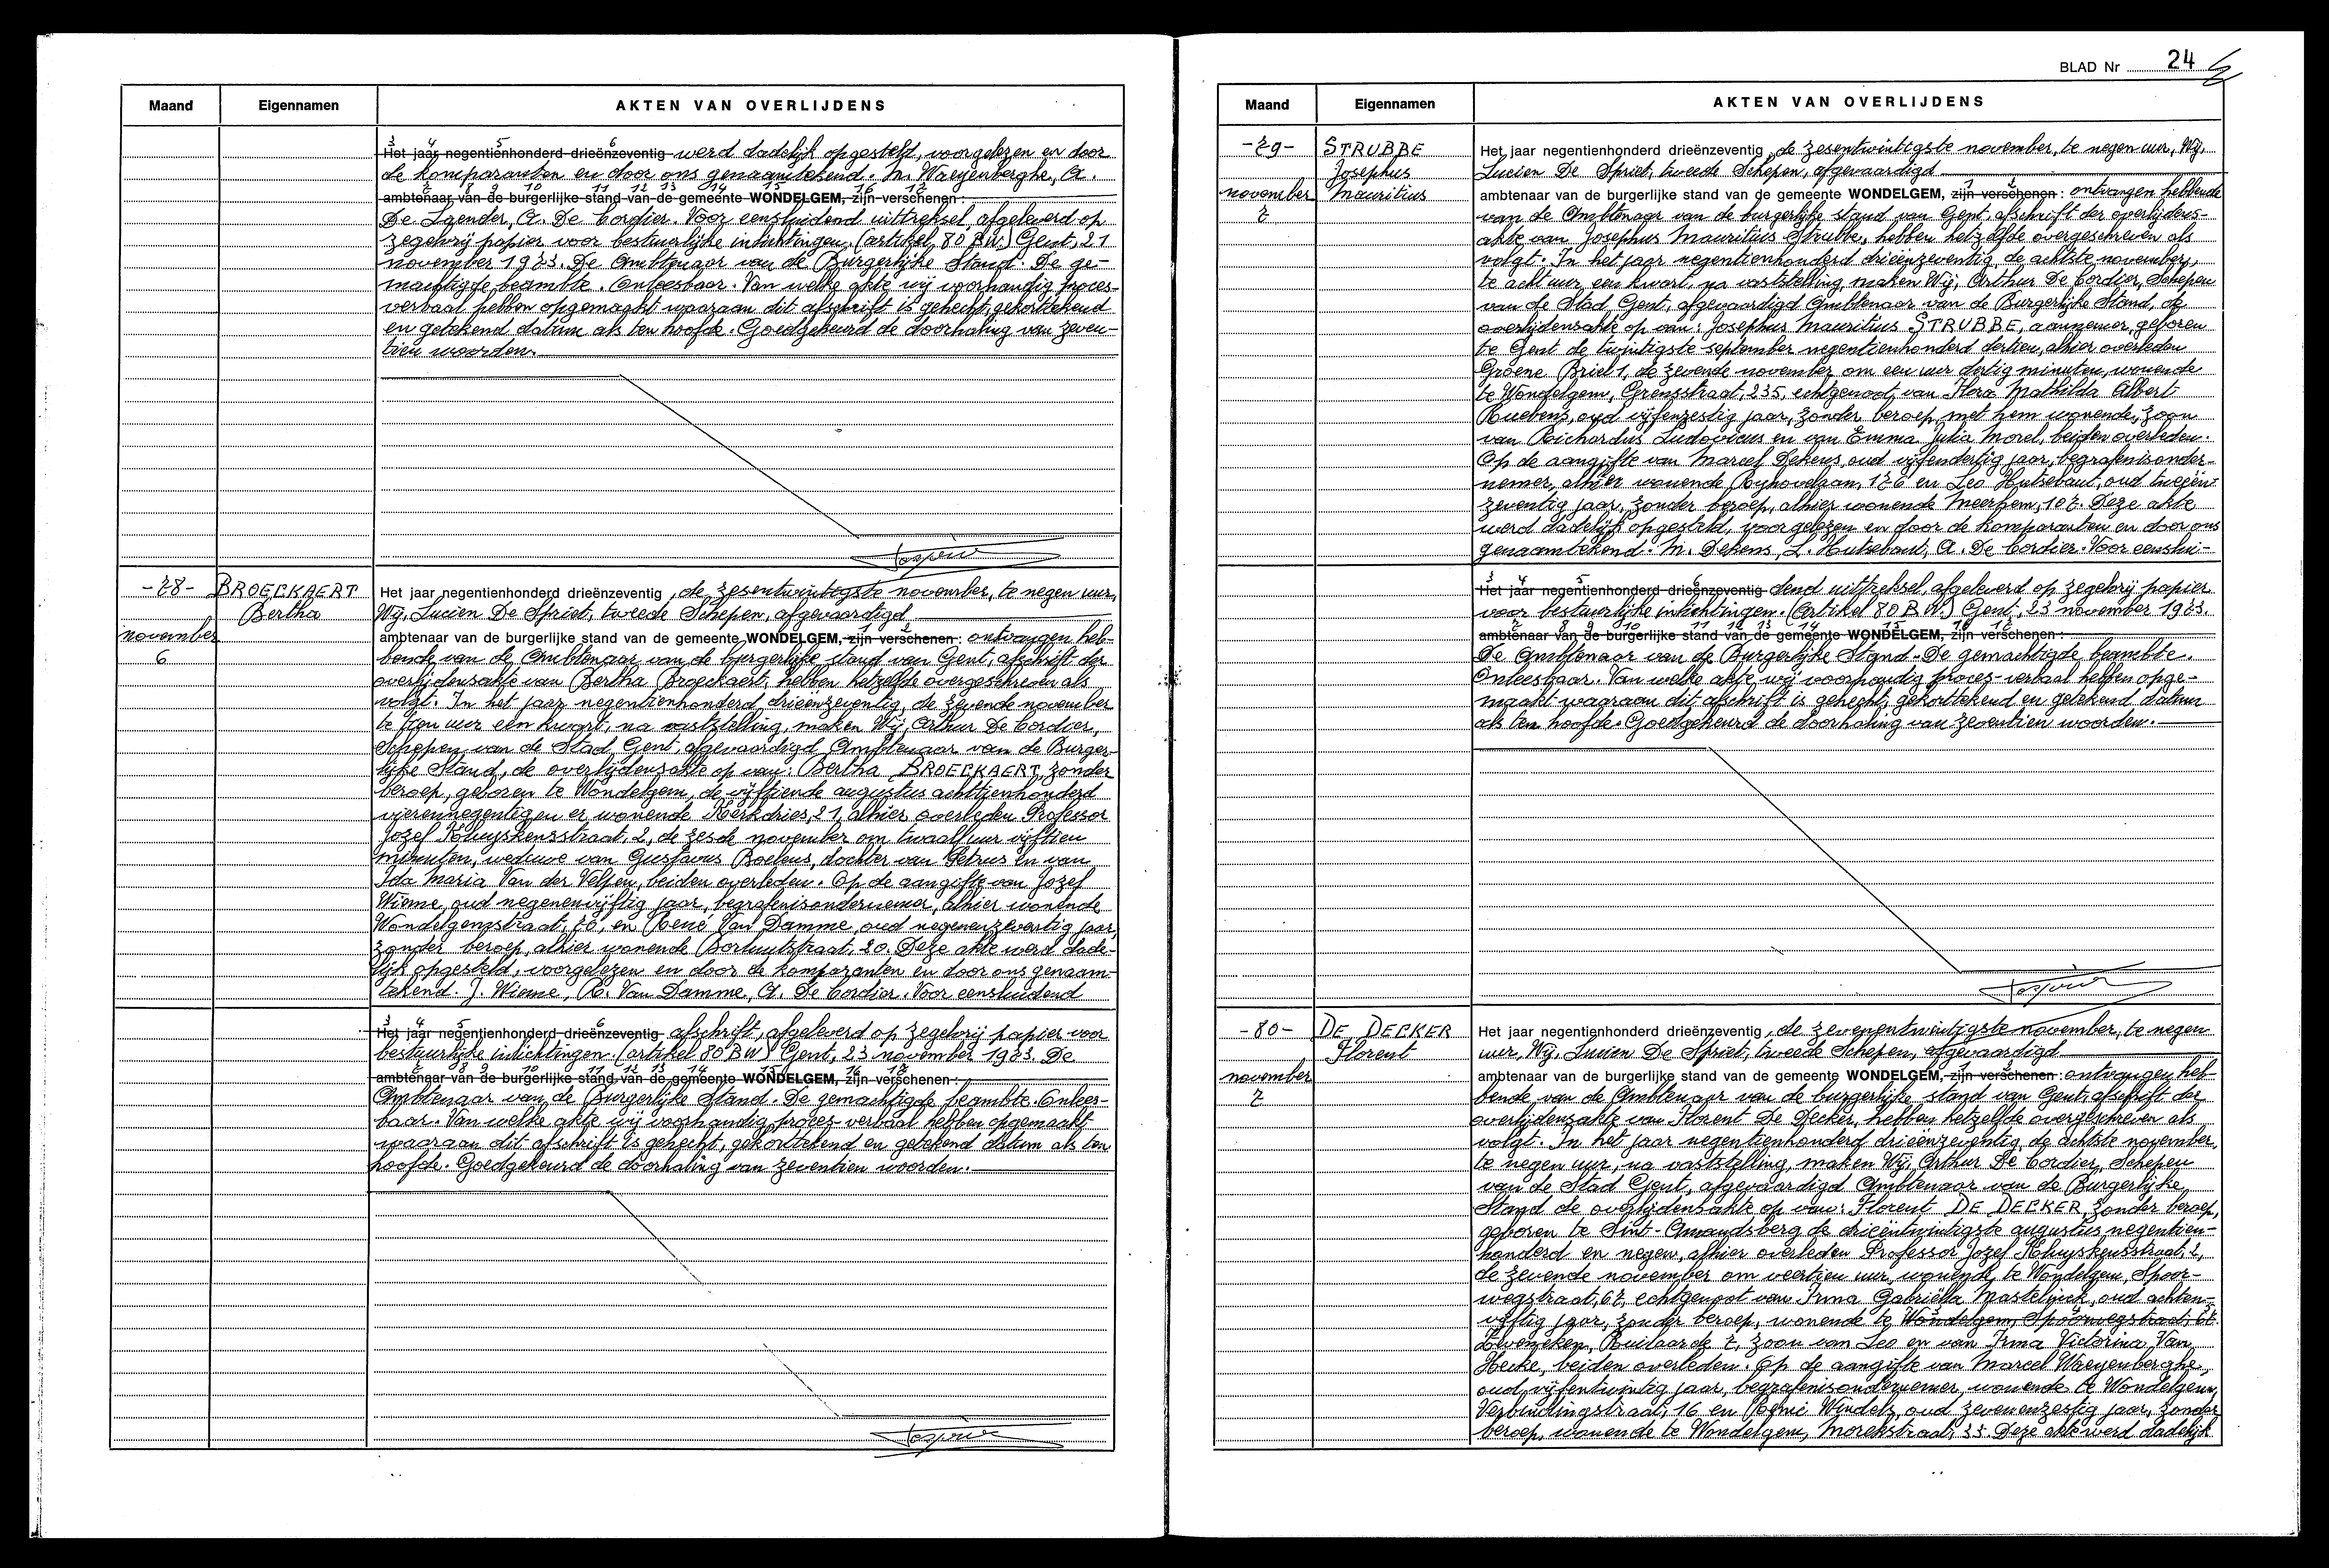 Maand Eigennamen AKTEN VAN OVERLIJDENS
3 4 5 6
Het jaar negentienhonderd drieënzeventig werd dadelijk opgesteld, voorgelezen en door
de komparanten en door ons genaamtekend. M. Waeyenberghe, A.
7 8 9 10 11 12 13 14 15 16 17
ambtenaar van de burgerlijke stand van de gemeente WONDELGEM, zijn verschenen:
De Laender, A. De Cordier. Voor eensluidend uittreksel, afgeleverd op
zegelvrij papier voor bestuurlijke inlichtingen. (artikel 80 B.W.) Gent, 21
november 1973. De Ambtenaar van de Burgerlijke Stand. De ge-
machtigde beambte. Onleesbaar. Van welke akte wij voorhandig proces-
verbaal hebben opgemaakt waaraan dit afschrift is gehecht, gekorttekend
en getekend datum als ten hoofde. Goedgekeurd de doorhaling van zeven-
tien woorden.
-78- BROECKAERT
Bertha
november
6
Het jaar negentienhonderd drieënzeventig, de zesentwintigste november, te negen uur,
Wij, Lucien De Spriet, tweede Schepen, afgevaardigd
1 2
ambtenaar van de burgerlijke stand van de gemeente WONDELGEM, zijn verschenen: ontvangen heb-
bende van de Ambtenaar van de burgerlijke stand van Gent, afschrift der
overlijdensakte van Bertha Broeckaert, hebben hetzelfde overgeschreven als
volgt. In het jaar negentienhonderd drieënzeventig, de zevende november
te tien uur een kwart, na vaststelling, maken Wij, Arthur De Cordier,
Schepen van de Stad Gent, afgevaardigd Ambtenaar van de Burger-
lijke Stand, de overlijdensakte op van: Bertha BROECKAERT, zonder
beroep, geboren te Wondelgem, de vijftiende augustus achttienhonderd
vierennegentig en er wonende Kerkdries, 21, alhier overleden Professor
Jozef Kluyskensstraat, 2, de zesde november om twaalf uur vijftien
minuten, weduwe van Gustavus Roelens, dochter van Petrus en van
Ida Maria Van der Velpen, beiden overleden. Op de aangifte van Jozef
Wieme, oud negenenvijftig jaar, begrafenisondernemer, alhier wonende
Wondelgemstraat, 70, en René Van Damme, oud negenenzeventig jaar,
zonder beroep, alhier wonende Borluutstraat, 20. Deze akte werd dade-
lijk opgesteld, voorgelezen en door de komparanten en door ons genaam-
tekend. J. Wieme, R. Van Damme, A. De Cordier. Voor eensluidend
3 4 5 6
Het jaar negentienhonderd drieënzeventig afschrift, afgeleverd op zegelvrij papier voor
bestuurlijke inlichtingen. (artikel 80 BW) Gent, 23 november 1973. De
7 8 9 10 11 12 13 14 15 16 17
ambtenaar van de burgerlijke stand van de gemeente WONDELGEM, zijn verschenen:
Ambtenaar van de Burgerlijke Stand. De gemachtigde beambte. Onlees-
baar. Van welke akte wij voorhandig proces-verbaal hebben opgemaakt
waaraan dit afschrift is gehecht, gekorttekend en getekend datum als ten
hoofde. Goedgekeurd de doorhaling van zeventien woorden.
BLAD Nr 24
Maand Eigennamen AKTEN VAN OVERLIJDENS
-79- STRUBBE
Josephus
november Mauritius
7
Het jaar negentienhonderd drieënzeventig, de zesentwintigste november, te negen uur, Wij,
Lucien De Spriet, tweede Schepen, afgevaardigd
1 2
ambtenaar van de burgerlijke stand van de gemeente WONDELGEM, zijn verschenen: ontvangen hebbende
van de Ambtenaar van de burgerlijke stand van Gent, afschrift der overlijdens-
akte van Josephus Mauritius Strubbe, hebben hetzelfde overgeschreven als
volgt. In het jaar negentienhonderd drieënzeventig, de achtste november,
te acht uur een kwart, na vaststelling, maken Wij, Arthur De Cordier, Schepen
van de Stad Gent, afgevaardigd Ambtenaar van de Burgerlijke Stand, de
overlijdensakte op van: Josephus Mauritius STRUBBE, aannemer, geboren
te Gent de twintigste september negentienhonderd dertien, alhier overleden
Groene Briel 1, de zevende november om een uur dertig minuten, wonende
te Wondelgem, Grensstraat, 235, echtgenoot van Flora Mathilda Albert
Ruebens, oud vijfenzestig jaar, zonder beroep, met hem wonende, zoon
van Richardus Ludovicus en van Emma Julia Morel, beiden overleden.
Op de aangifte van Marcel Dekens, oud vijfendertig jaar, begrafenisonder-
nemer, alhier wonende Rijhovelaan, 176 en Leo Hutsebaut, oud tweeën-
zeventig jaar, zonder beroep, alhier wonende Meerhem, 107. Deze akte
werd dadelijk opgesteld, voorgelezen en door de komparanten en door ons
genaamtekend. M. Dekens, L. Hutsebaut, A. De Cordier. Voor eenslui-
3 4 5 6
Het jaar negentienhonderd drieënzeventig dend uittreksel, afgeleverd op zegelvrij papier
voor bestuurlijke inlichtingen. (Artikel 80 B.W.) Gent, 23 november 1973.
7 8 9 10 11 12 13 14 15 16 17
ambtenaar van de burgerlijke stand van de gemeente WONDELGEM, zijn verschenen:
De Ambtenaar van de Burgerlijke Stand. De gemachtigde beambte.
Onleesbaar. Van welke akte wij voorhandig proces-verbaal hebben opge-
maakt waaraan dit afschrift is gehecht, gekorttekend en getekend datum
als ten hoofde. Goedgekeurd de doorhaling van zeventien woorden.
-80- DE DECKER
Florent
november
7
Het jaar negentienhonderd drieënzeventig, de zevenentwintigste november, te negen
uur, Wij, Lucien De Spriet, tweede Schepen, afgevaardigd
1 2
ambtenaar van de burgerlijke stand van de gemeente WONDELGEM, zijn verschenen: ontvangen heb-
bende van de Ambtenaar van de burgerlijke stand van Gent, afschrift der
overlijdensakte van Florent De Decker, hebben hetzelfde overgeschreven als
volgt. In het jaar negentienhonderd drieënzeventig, de achtste november,
te negen uur, na vaststelling, maken Wij, Arthur De Cordier, Schepen
van de Stad Gent, afgevaardigd Ambtenaar van de Burgerlijke
Stand de overlijdensakte op van: Florent DE DECKER, zonder beroep,
geboren te Sint-Amandsberg de drieëntwintigste augustus negentien-
honderd en negen, alhier overleden Professor Jozef Kluyskensstraat, 2,
de zevende november om veertien uur, wonende te Wondelgem, Spoor-
wegstraat, 67, echtgenoot van Irma Gabriëlla Mastelinck, oud achten-
vijftig jaar, zonder beroep, wonende te Wondelgem, Spoorwegstraat, 67.
Zeveneken, Ruilaarde 7, zoon van Leo en van Irma Victorina Van
Hecke, beiden overleden. Op de aangifte van Marcel Waeyenberghe,
oud vijfentwintig jaar, begrafenisondernemer, wonende te Wondelgem,
Verbindingstraat, 16 en Remi Windels, oud zevenenzestig jaar, zonder
beroep, wonende te Wondelgem, Morekstraat, 35. Deze akte werd dadelijk